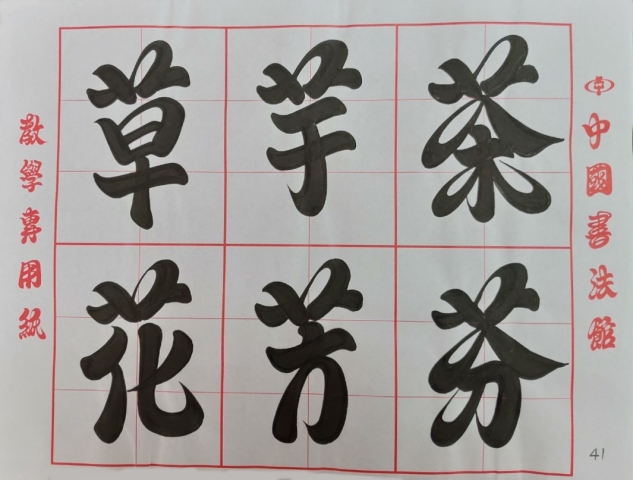 草芋茶
花芳芬
中國書法館
教學專用紙
41